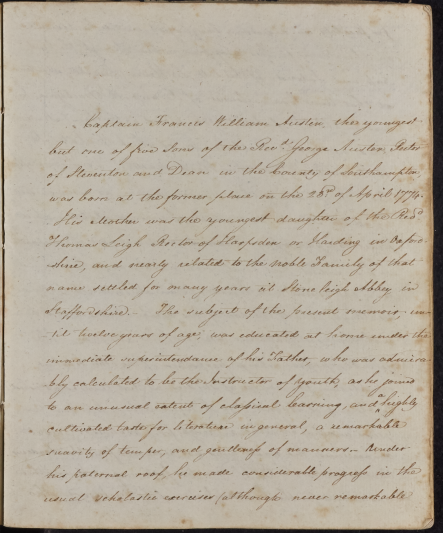 Captain Francis William Austen, the youngest
but one of five Sons of the Revd. George Austen, Rector
of Steventon and Dean in the County of Southampton,
was born at the former place on the 23d of April 1774.
His Mother was the youngest daughter of the Revd.
Thomas Leigh Rector of Harpsden or Harding in Oxford-
shire, and nearly related to the noble Family of that
name settled for many years at Stone leigh Abbey in
Staffordshire. – The subject of the present memoir, un-
til twelve years of age, was educated at home under the
immediate superintendance of his Father, who was admira-
bly calculated to be the Instructor of youth, as he joined
to an unusual extent of classical learning, and a highly
cultivated taste for literature in general, a remarkable
suavity of temper, and gentleness of manners. – Under
his paternal roof, he made considerable progress in the
usual scholastic exercises (although never remarkable